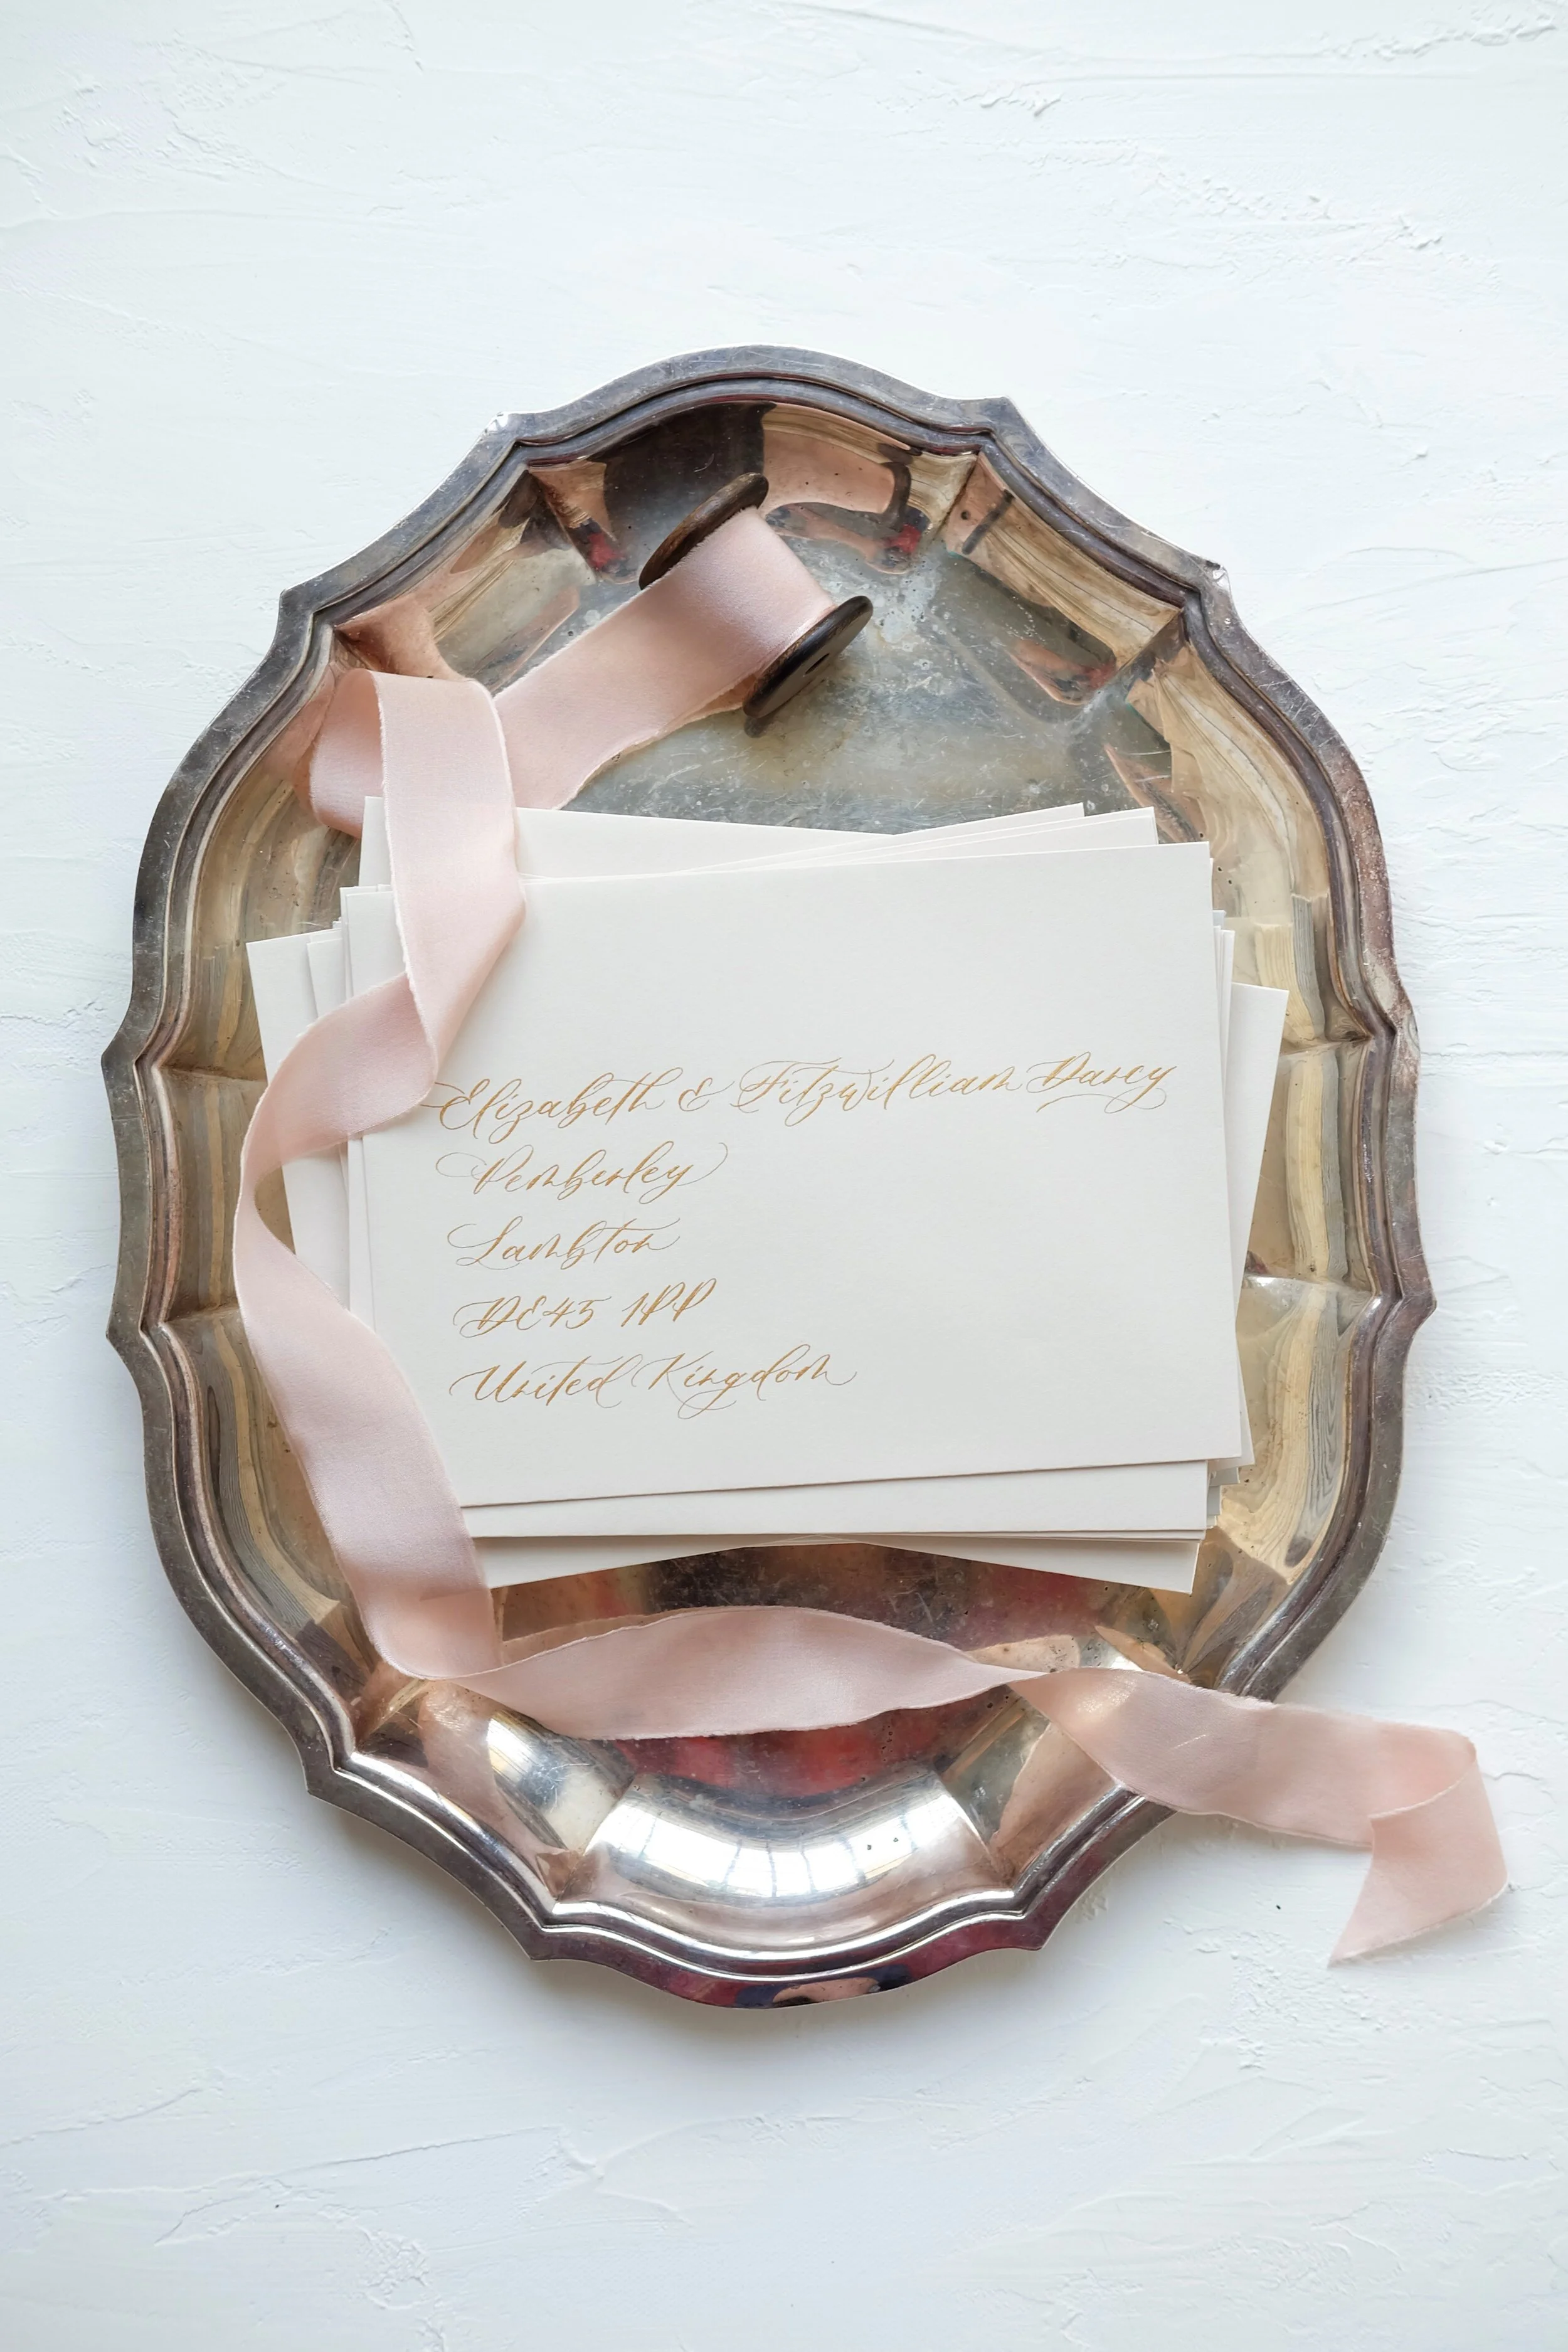 Elizabeth & Fitzwilliam Darcy
Pemberley
Lambton
DE45 1PP
United Kingdom